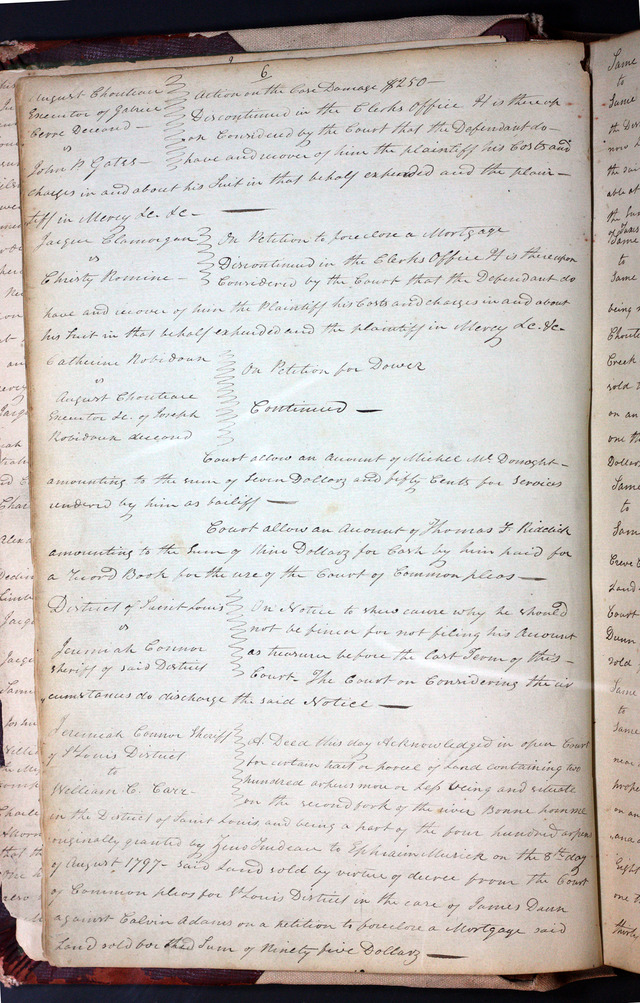 6
August Chouteau
Executor of Gabriel
Cerre Deceasd —
vs
John P. Gates —
Action on the Case Damage $250 —
Discontinued in the Clerks Office It is thereup
on Considered by the Court that the Defendant do —
have and recover of him the plaintiff his Costs and
Charges in and about his Suit in that behalf expended and the plain-
tiff in Mercy &c &c —
Jacque Clamorgan
vs
Christy Romine —
On Petition to foreclose a Mortgage
Discontinued in the Clerks Office It is thereupon
Considered by the Court that the Defendant do
have and recover of him the Plaintiff his Costs and charges in and about
his Suit in that behalf expended and the plaintiff in Mercy &c &c
Catherine Robidoux
vs
August Chouteau
Executor &c. of Joseph
Robidoux deceasd
On Petition for Dower
Continued —
Court allow an Account of Michel Mc Donoght —
amounting to the sum of Seven Dollars and fifty Cents for Services
rendered by him as bailiff —
Court allow an Account of Thomas F. Riddick
amounting to the Sum of Nine Dollars for Cash by him paid for
a Record Book for the use of the Court of Common pleas —
District of Saint Louis
vs
Jeremiah Connor
Sheriff of said District
On Notice to shew cause why he should
not be fined for not filing his Account
as treasurer before the last Term of this —
Court. The Court on Considering the cir
cumstances do discharge the said Notice —
Jeremiah Connor Sheriff
of St Louis District
to
William C. Carr —
A Deed this day Acknowledged in open Court
for certain tract or parcel of Land containing two
hundred arpens more or less lying and situate
on the second fork of the river Bonne homme
in the District of Saint Louis and being a part of the four hundred arpen
originally granted by Zeno Trudeau to Ephraim Musick on the 8th day
of August 1797 — said Land sold by virtue of decree from the Court
of Common pleas for St Louis District in the case of James Dunn
against Calvin Adams on a petition to foreclose a Mortgage said
Land sold for the Sum of Ninety five Dollars —
Same
to
Same